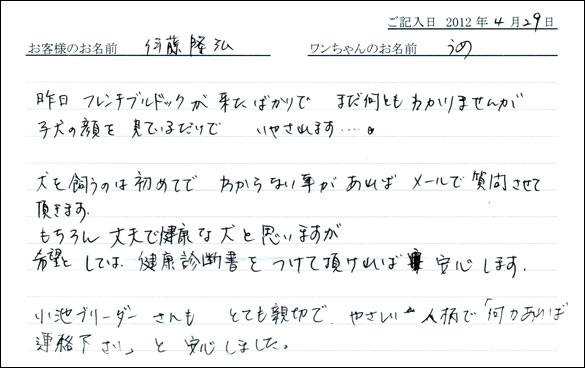 ご記入日 2012年4月29日
お客様のお名前 伊藤隆弘 ワンちゃんのお名前 うめ
昨日 フレンチブルドックが 来たばかりで まだ何とも わかりませんが
子犬の顔を 見ているだけで いやされます‥‥。
犬を飼うのは初めてで わからない事が あれば メールで 質問させて
頂きます。
もちろん 丈夫で健康な犬と思いますが
希望と しては、健康診断書を つけて頂ければ 安心します。
小池ブリーダー さんも とても親切で、やさしい 人柄で「何かあれば
連絡下さい」と 安心しました。